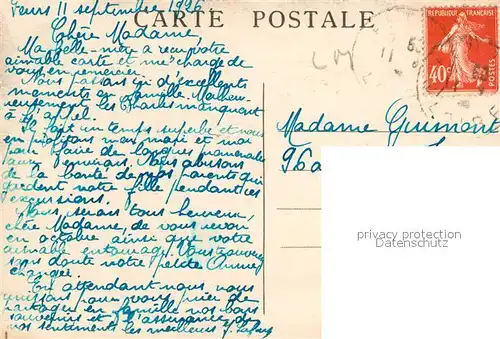 11 septembre 1926
CARTE POSTALE
Chère Madame,
Ma belle-mère a reçu votre
aimable carte et me charge de
vous en remercier.
Nous passons ici d'excellents
moments en famille. Malheu-
reusement les Charles manquent
à l'appel.
Il fait un temps superbe et nous
en profitons mon mari et moi
pour faire de longues promenades
aux environs. Nous abusons
de la bonté de mes parents qui
gardent notre fille pendant ces
excursions.
Nous serons tous heureux,
chère Madame, de vous revoir
en octobre ainsi que votre
aimable entourage. Vous trouverez
sans doute notre petite Annie
changée.
En attendant nous nous
unissons pour vous prier de
partager en famille nos bons
souvenirs et l'assurance de
nos sentiments les meilleurs
REPUBLIQUE FRANÇAISE
40c
POSTES
Madame Guimont
96
privacy protection
www.oldthing.com